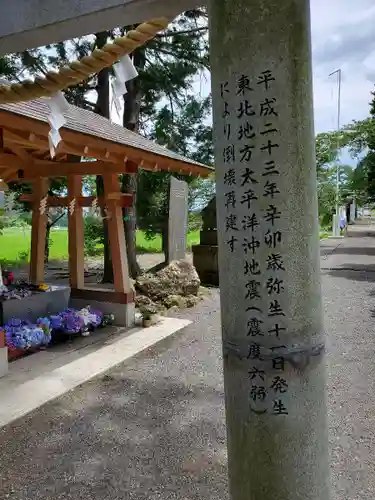 平成二十三年辛卯歳弥生十一日発生
東北地方太平洋沖地震(震度六弱)
により倒壊再建す